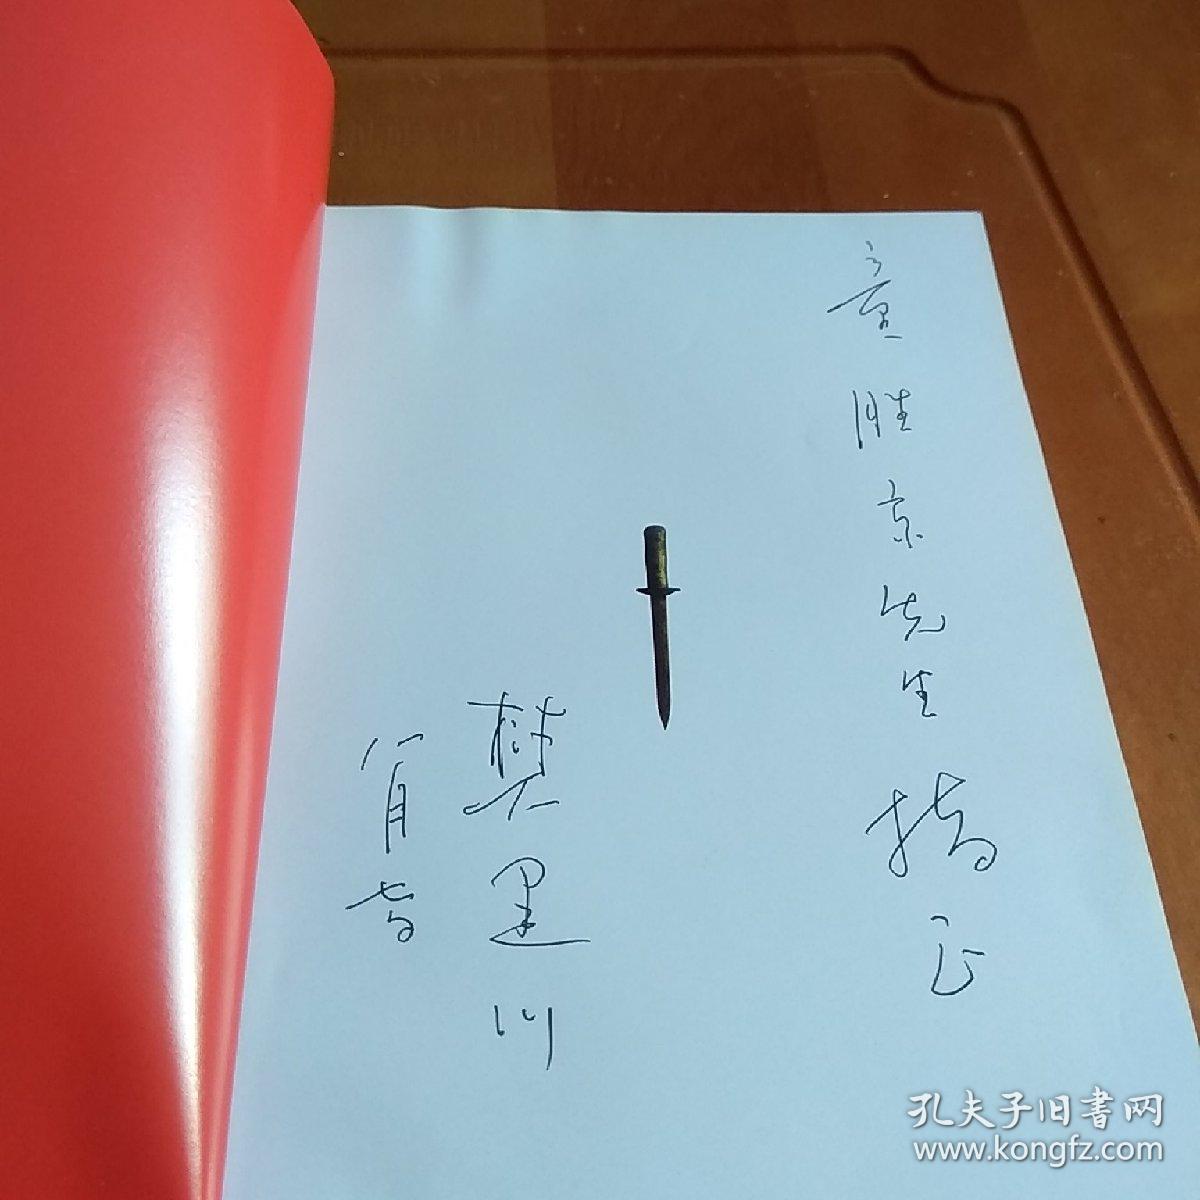 童胜京先生指正
樊建川
八月七日
孔夫子旧书网
www.kongfz.com